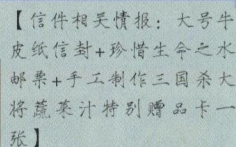 【信件相关情报：大号牛
皮纸信封+珍惜生命之水
邮票+手工制作三国杀大
将蔬菜汁特别赠品卡一
张】